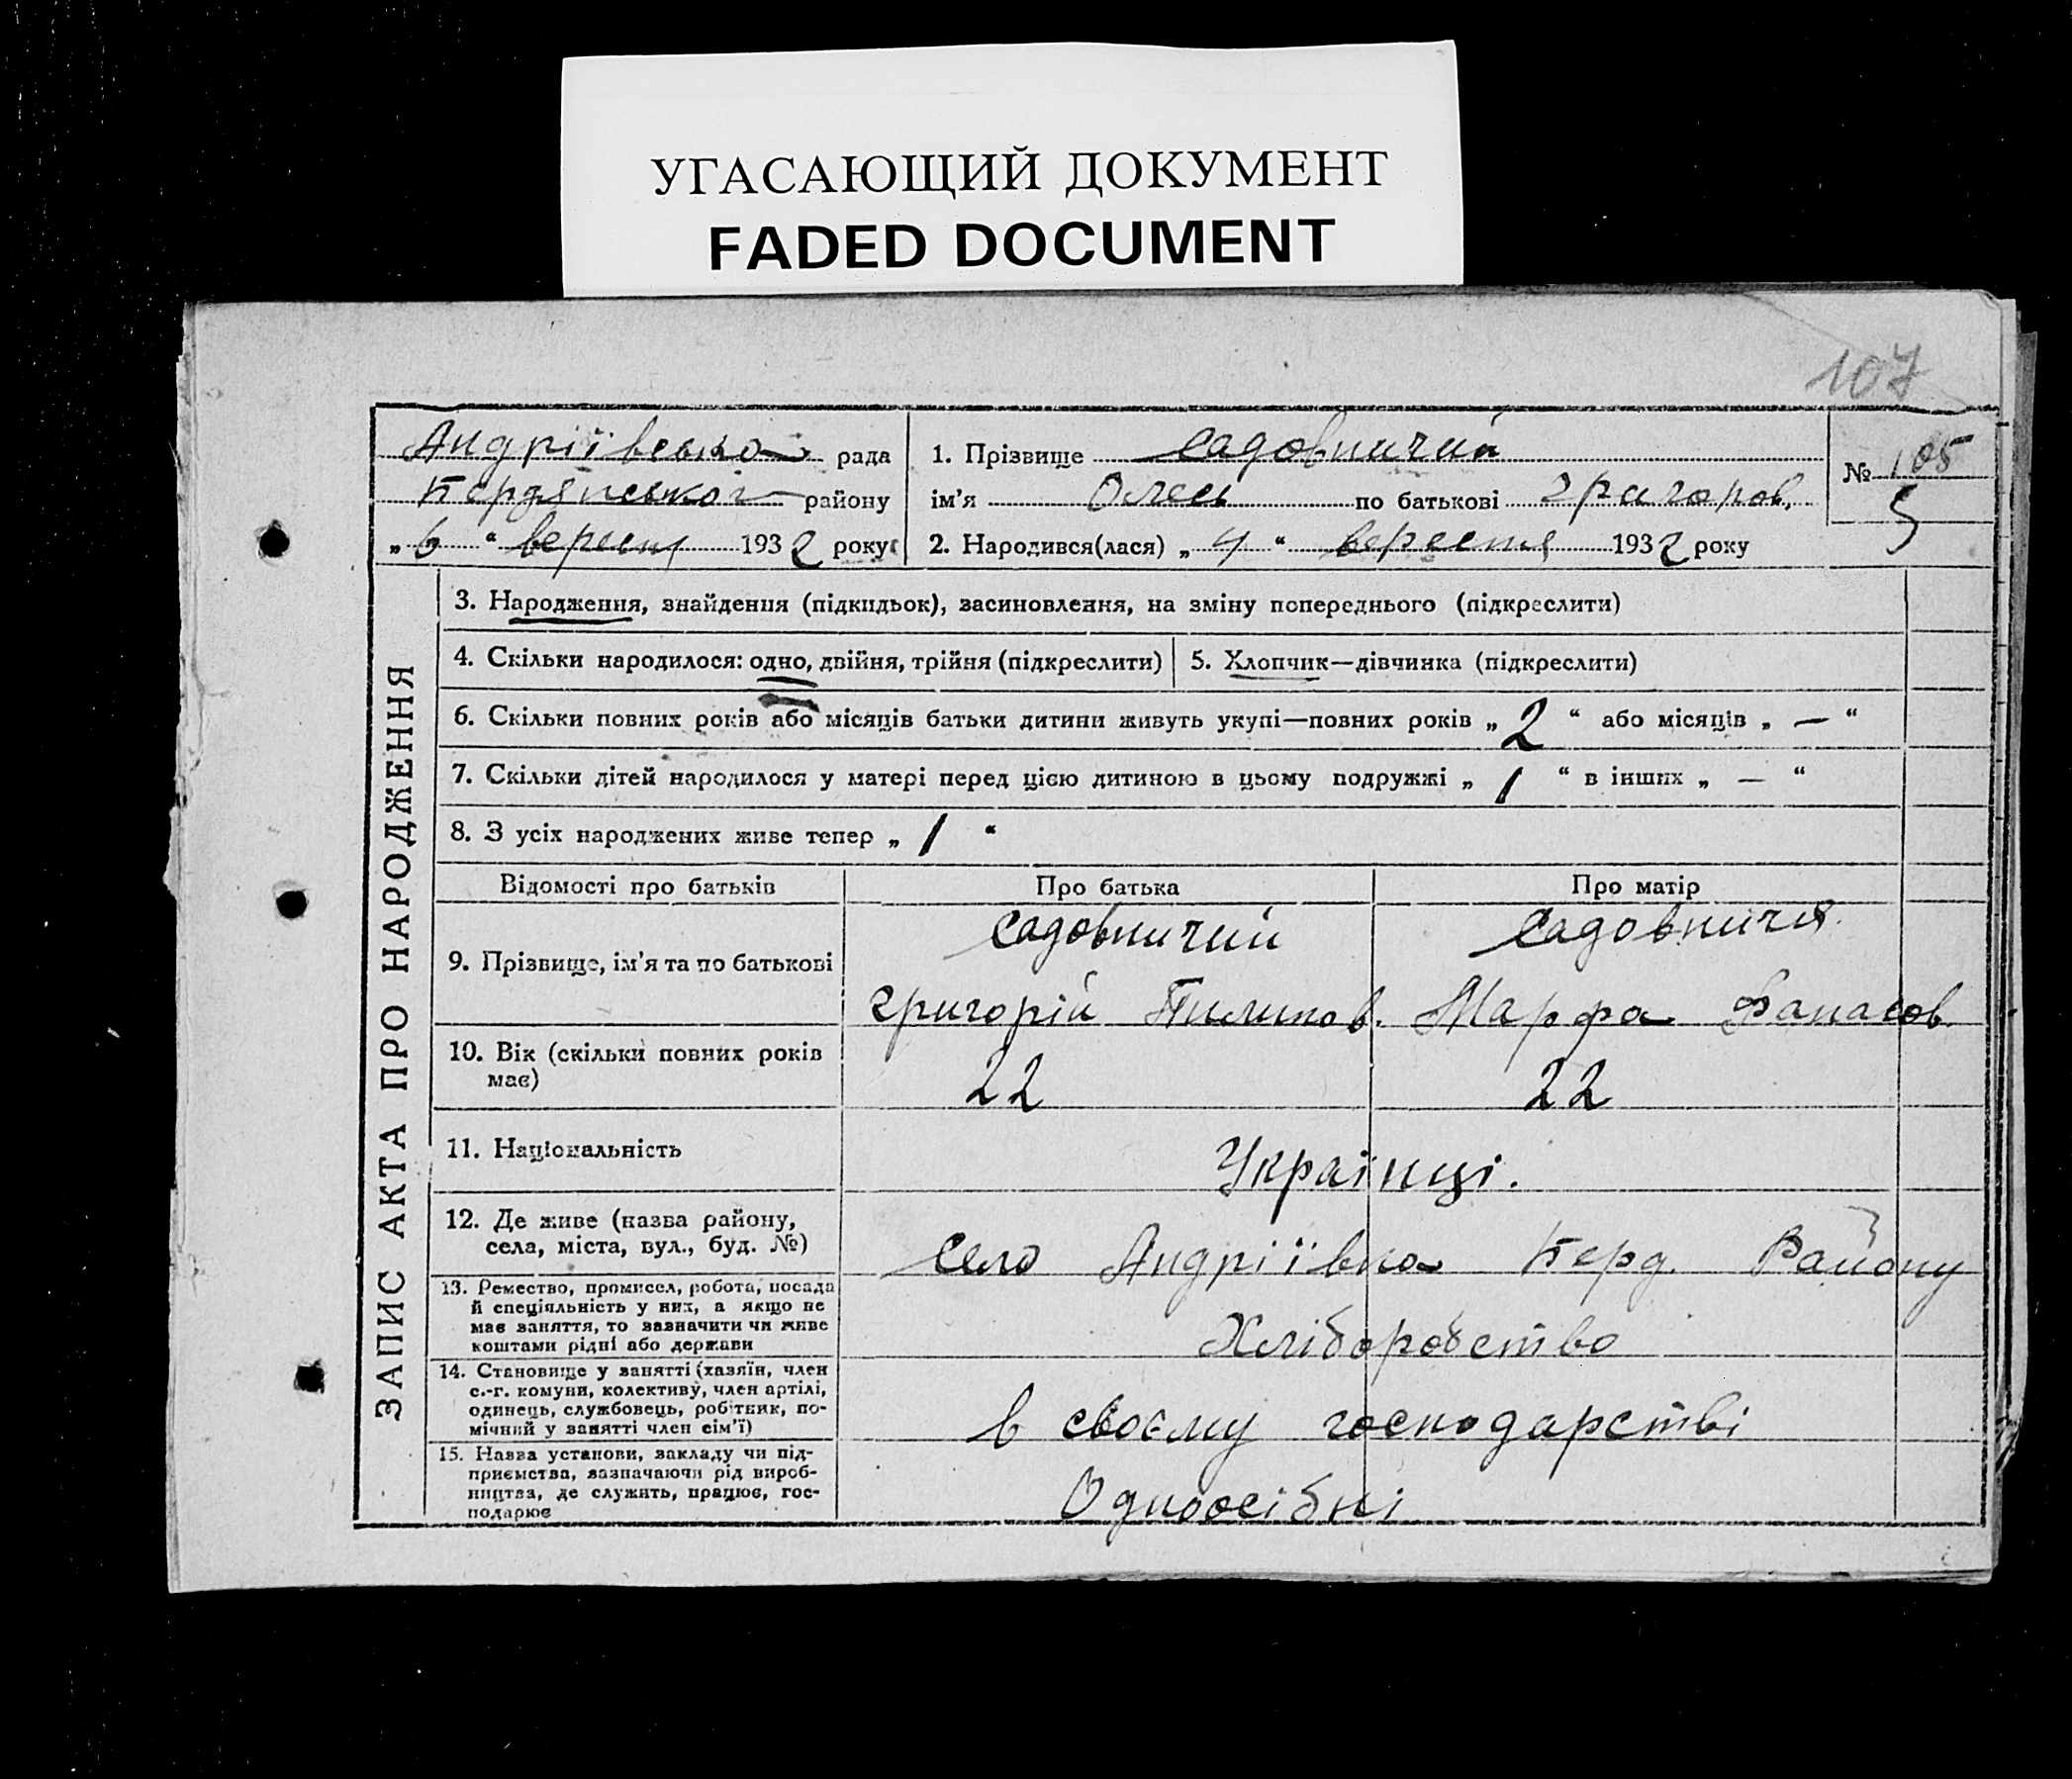 УГАСАЮЩИЙ ДОКУМЕНТ
FADED DOCUMENT
107
Андріївська рада
Бердянського району
„ 6 “ вересня 1932 року
1. Прізвище Садовничий
ім’я Олесь по батькові Григоров.
2. Народився(лася) „ 4 “ вересня 1932 року
№ 105
5
ЗАПИС АКТА ПРО НАРОДЖЕННЯ
3. Народження, знайдення (підкидьок), засиновлення, на зміну попереднього (підкреслити)
4. Скільки народилося: одно, двійня, трійня (підкреслити) 5. Хлопчик—дівчинка (підкреслити)
6. Скільки повних років або місяців батьки дитини живуть укупі—повних років „ 2 “ або місяців „ — “
7. Скільки дітей народилося у матері перед цією дитиною в цьому подружжі „ 1 “ в інших „ — “
8. З усіх народжених живе тепер „ 1 “
Відомості про батьків Про батька Про матір
9. Прізвище, ім’я та по батькові
Садовничий
Григорій Пилипов.
Садовнича
Марфа Фанасов.
10. Вік (скільки повних років
має)
22 22
11. Національність
Українці.
12. Де живе (назва району,
села, міста, вул., буд. №)
Село Андріївка Берд. Району
13. Ремество, промисел, робота, посада
й спеціяльність у них, а якщо не
має заняття, то зазначити чи живе
коштами рідні або держави
Хліборобство
14. Становище у занятті (хазяїн, член
с.-г. комуни, колективу, член артілі,
одинець, службовець, робітник, по-
мічний у занятті член сім’ї)
в своєму господарстві
15. Назва установи, закладу чи під-
приємства, зазначаючи рід вироб-
ництва, де служить, працює, гос-
подарює
Одноосібні